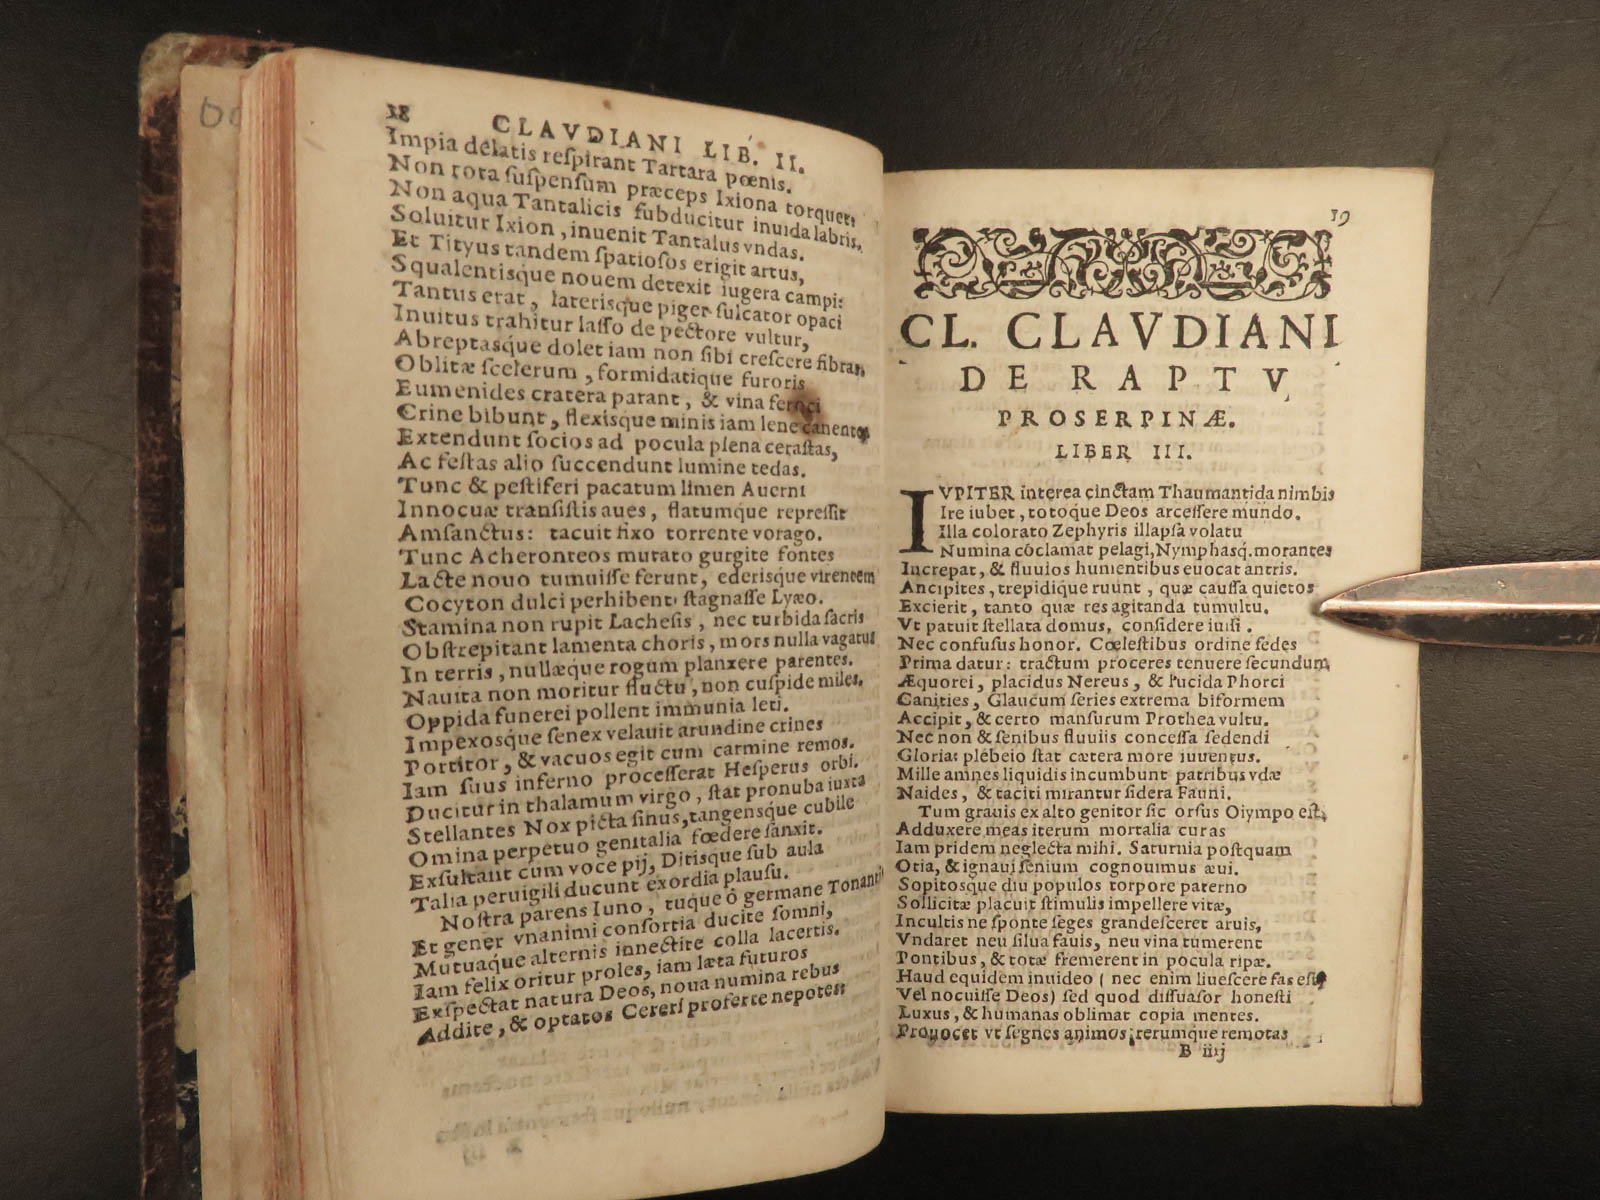 18 CLAVDIANI LIB. II.
Impia delatis reſpirant Tartara pœnis.
Non rota ſuſpenſum præceps Ixiona torquet:
Non aqua Tantalicis ſubducitur inuida labris.
Soluitur Ixion, inuenit Tantalus vndas.
Et Tityus tandem ſpatioſos erigit artus,
Squalentisque nouem detexit iugera campi:
Tantus erat, laterisque piger ſulcator opaci
Inuitus trahitur laſſo de pectore vultur,
Abreptasque dolet iam non ſibi creſcere fibras,
Oblitæ ſcelerum, formidatique furoris
Eumenides cratera parant, & vina feroci
Crine bibunt, flexisque minis iam lene canentes
Extendunt ſocios ad pocula plena ceraſtas,
Ac feſtas alio ſuccendunt lumine tedas.
Tunc & peſtiferi pacatum limen Auerni
Innocuæ tranſiſtis aues, flatumque repreſſit
Amſanctus: tacuit fixo torrente vorago.
Tunc Acheronteos mutato gurgite fontes
Lacte nouo tumuiſſe ferunt, ederisque virentem
Cocyton dulci perhibent ſtagnaſſe Lyæo.
Stamina non rupit Lacheſis, nec turbida ſacris
Obſtrepitant lamenta choris, mors nulla vagatur
In terris, nullæque rogum planxere parentes.
Nauita non moritur fluctu, non cuſpide miles.
Oppida funerei pollent immunia leti.
Impexosque ſenex velauit arundine crines
Portitor, & vacuos egit cum carmine remos.
Iam ſuus inferno proceſſerat Heſperus orbi.
Ducitur in thalamum virgo, ſtat pronuba iuxta
Stellantes Nox picta ſinus, tangensque cubile
Omina perpetuo genitalia fœdere ſanxit.
Exſultant cum voce pij, Ditisque ſub aula
Talia peruigili ducunt exordia plauſu.
Noſtra parens Iuno, tuque ô germane Tonanti
Et gener vnanimi conſortia ducite ſomni,
Mutuaque alternis innectite colla lacertis.
Iam felix oritur proles, iam læta futuros
Exſpectat natura Deos, noua numina rebus
Addite, & optatos Cereri proferte nepotes.
39
CL. CLAVDIANI
DE RAPTV
PROSERPINÆ.
LIBER III.
IVPITER interea cinctam Thaumantida nimbis
Ire iubet, totoque Deos arceſſere mundo.
Illa colorato Zephyris illapſa volatu
Numina cōclamat pelagi, Nymphasq. morantes
Increpat, & fluuios humentibus euocat antris.
Ancipites, trepidique ruunt, quæ cauſſa quietos
Excierit, tanto quæ res agitanda tumultu.
Vt patuit ſtellata domus, conſidere iuſſi.
Nec confuſus honor. Cœleſtibus ordine ſedes
Prima datur: tractum proceres tenuere ſecundum
Æquorei, placidus Nereus, & lucida Phorci
Canities, Glaucum ſeries extrema biformem
Accipit, & certo manſurum Prothea vultu.
Nec non & ſenibus fluuiis conceſſa ſedendi
Gloria: plebeio ſtat cætera more iuuentus.
Mille amnes liquidis incumbunt patribus vdæ
Naides, & taciti mirantur ſidera Fauni.
Tum grauis ex alto genitor ſic orſus Olympo eſt,
Adduxere meas iterum mortalia curas
Iam pridem neglecta mihi. Saturnia poſtquam
Otia, & ignaui ſenium cognouimus æui.
Sopitosque diu populos torpore paterno
Sollicitæ placuit ſtimulis impellere vitæ,
Incultis ne ſponte ſeges grandeſceret aruis,
Vndaret neu ſilua fauis, neu vina tumerent
Pontibus, & totæ fremerent in pocula ripæ.
Haud equidem inuideo (nec enim liueſcere fas eſt,
Vel nocuiſſe Deos) ſed quod diſſuaſor honeſti
Luxus, & humanas oblimat copia mentes.
Prouocet vt ſegnes animos, rerumque remotas
B iiij